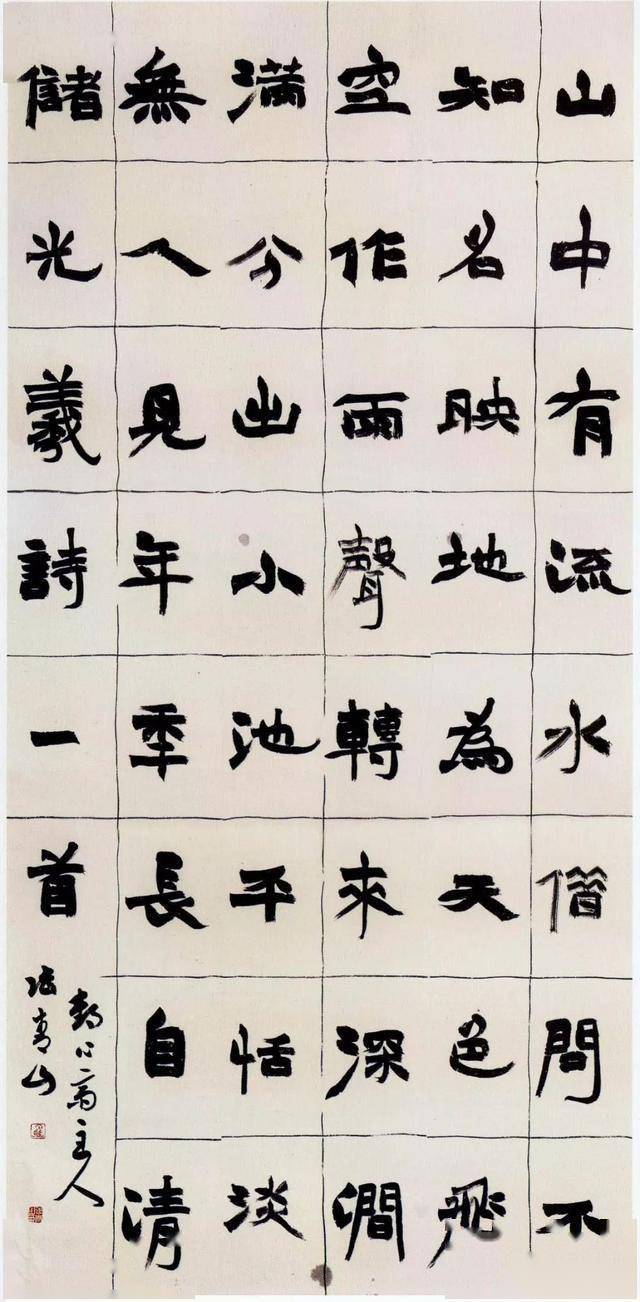 山中有流水借問不
知名映地為天色飛
空作雨聲轉來深澗
滿分出小池平恬淡
無人見年秊長自清
儲光羲詩一首
齋主人
張青山